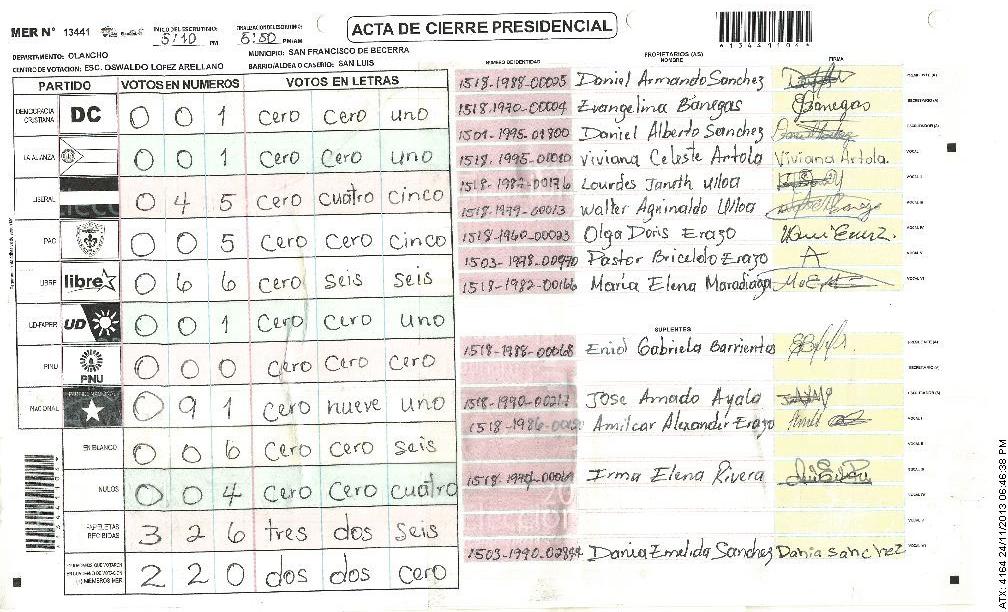 MER N° 13441
INICIO DEL ESCRUTINIO: 5:10 PM
FINALIZACION DEL ESCRUTINIO: 5:50 PM/AM
ACTA DE CIERRE PRESIDENCIAL
DEPARTAMENTO: OLANCHO
MUNICIPIO: SAN FRANCISCO DE BECERRA
CENTRO DE VOTACION: ESC. OSWALDO LOPEZ ARELLANO
BARRIO/ALDEA O CASERIO: SAN LUIS
PARTIDO VOTOS EN NUMEROS VOTOS EN LETRAS
DEMOCRACIA CRISTIANA DC 0 0 1 cero cero uno
LA ALIANZA 0 0 1 cero cero uno
LIBERAL 0 4 5 cero cuatro cinco
PAC 0 0 5 cero cero cinco
LIBRE libre 0 6 6 cero seis seis
UD-FAPER UD 0 0 1 cero cero uno
PINU PNU 0 0 0 cero cero cero
NACIONAL 0 9 1 cero nueve uno
EN BLANCO 0 0 6 cero cero seis
NULOS 0 0 4 cero cero cuatro
PAPELETAS RECIBIDAS 3 2 6 tres dos seis
2 2 0 dos dos cero
NUMERO DE IDENTIDAD
PROPIETARIOS (AS)
NOMBRE
FIRMA
1518-1988-00005 Daniel Armando Sanchez
1518-1970-00004 Evangelina Banegas Banegas
1501-1995-01800 Daniel Alberto Sanchez
1518-1995-01010 Viviana Celeste Artola Viviana Artola
1518-1982-00176 Lourdes Janeth Ulloa
1518-1979-00013 Walter Aguinaldo Ulloa
1518-1960-00023 Olga Doris Erazo
1503-1978-00970 Pastor Briceldo Erazo
1518-1982-00166 Maria Elena Maradiaga
SUPLENTES
1518-1988-00068 Enid Gabriela Barrientos
1518-1990-00217 Jose Amado Ayala
Amilcar Alexander Erazo
Irma Elena Rivera
1503-1990-02844 Dania Emelida Sanchez Dania sanchez
ATX: 4164 24/11/2013 06:46:38 PM